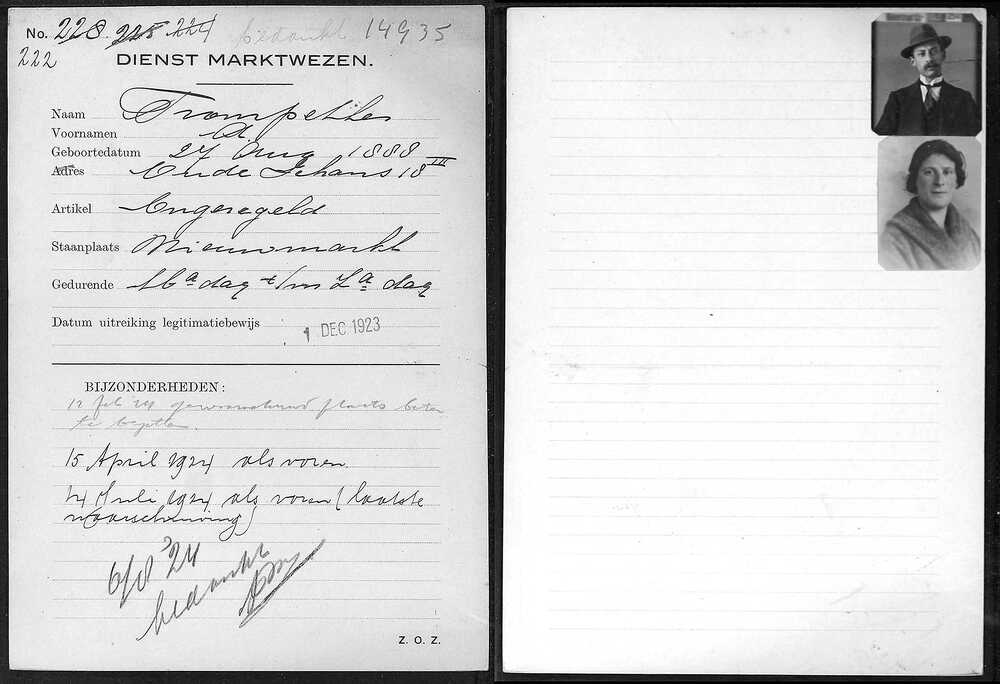 No. 228. 225 224 bedankt 14935
222
DIENST MARKTWEZEN.
Naam Trompetter
Voornamen A.
Geboortedatum 27 Aug 1888
Adres Oude Schans 18 III
Artikel Ongeregeld
Staanplaats Nieuwmarkt
Gedurende Ma dag t/m Za dag
Datum uitreiking legitimatiebewijs 1 DEC. 1923
BIJZONDERHEDEN:
12 feb 24 gewaarschuwd plaats beter
te bezetten.
15 April 1924 als voren.
24 Juli 1924 als voren (laatste
waarschuwing)
6/8 '24
bedankt
Z. O. Z.